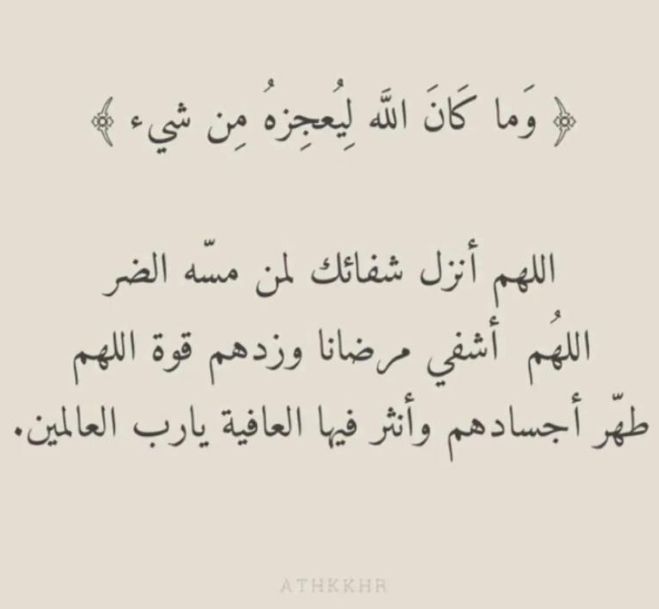 ﴿ وَما كَانَ اللَّه لِيُعجِزهُ مِن شيء ﴾
اللهم أنزل شفائك لمن مسّه الضر
اللهُم أشفي مرضانا وزدهم قوة اللهم
طهّر أجسادهم وأنثر فيها العافية يارب العالمين.
ATHKKHR